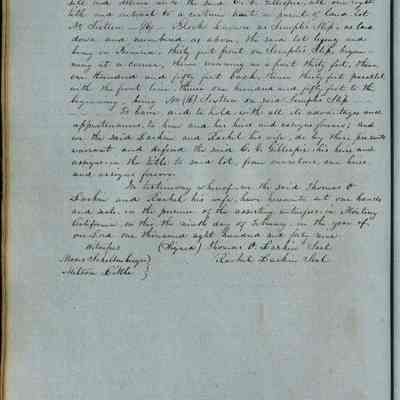 sell and release unto the said C. V. Gillespie, all our right
title and interest to a certain part or parcel of land lot
No Sixteen Block known as Semple's Slip, as laid
down and numbered as above, the said lot lying and
being in Benicia, thirty feet front on Semple's Slip, begin-
ning at a corner, thence running as a front thirty feet, thence
one hundred and fifty feet back, thence thirty feet parallel
with the front line, thence one hundred and fifty feet to the
beginning, being No (16) Sixteen on said Semple's Slip
To have and to hold, with all its advantages and
appurtenances, to him and his heirs and assigns forever, and
we the said Larkin and Rachel his wife, do by these presents
warrant and defend the said C. V. Gillespie, his heirs and
assigns in the title to said lot, from ourselves, our heirs
and assigns forever.
In testimony whereof we the said Thomas O.
Larkin and Rachel his wife, have hereunto set our hands
and seals, in the presence of the assisting witnesses, in Monterey
California, on this the ninth day of February, in the year of
our Lord one thousand eight hundred and forty nine
Witnesses (Signed) Thomas O. Larkin Seal
Moses Schallenberger } Rachel Larkin Seal
Milton Little }